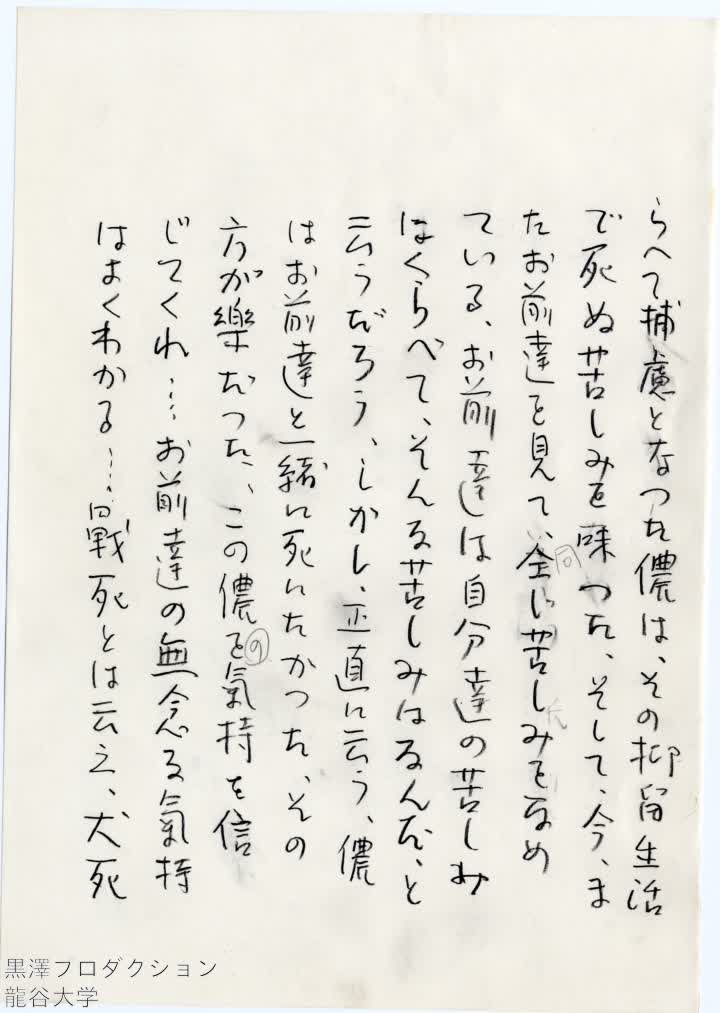 らへて捕虜となつた儂は、その抑留生活
で死ぬ苦しみを味つた、そして、今、ま
たお前達を見て、全じ苦しみをなめ
同
ている、お前達は自分達の苦しみ
はくらべて、そんな苦しみはなんだ、と
云うだろう、しかし、正直に云う、儂
はお前達と一緒に死にたかつた、その
方が樂だつた、この儂を氣持を信
の
じてくれ……お前達の無念な氣持
はよくわかる……戰死とは云え、犬死
黒澤プロダクション
龍谷大学